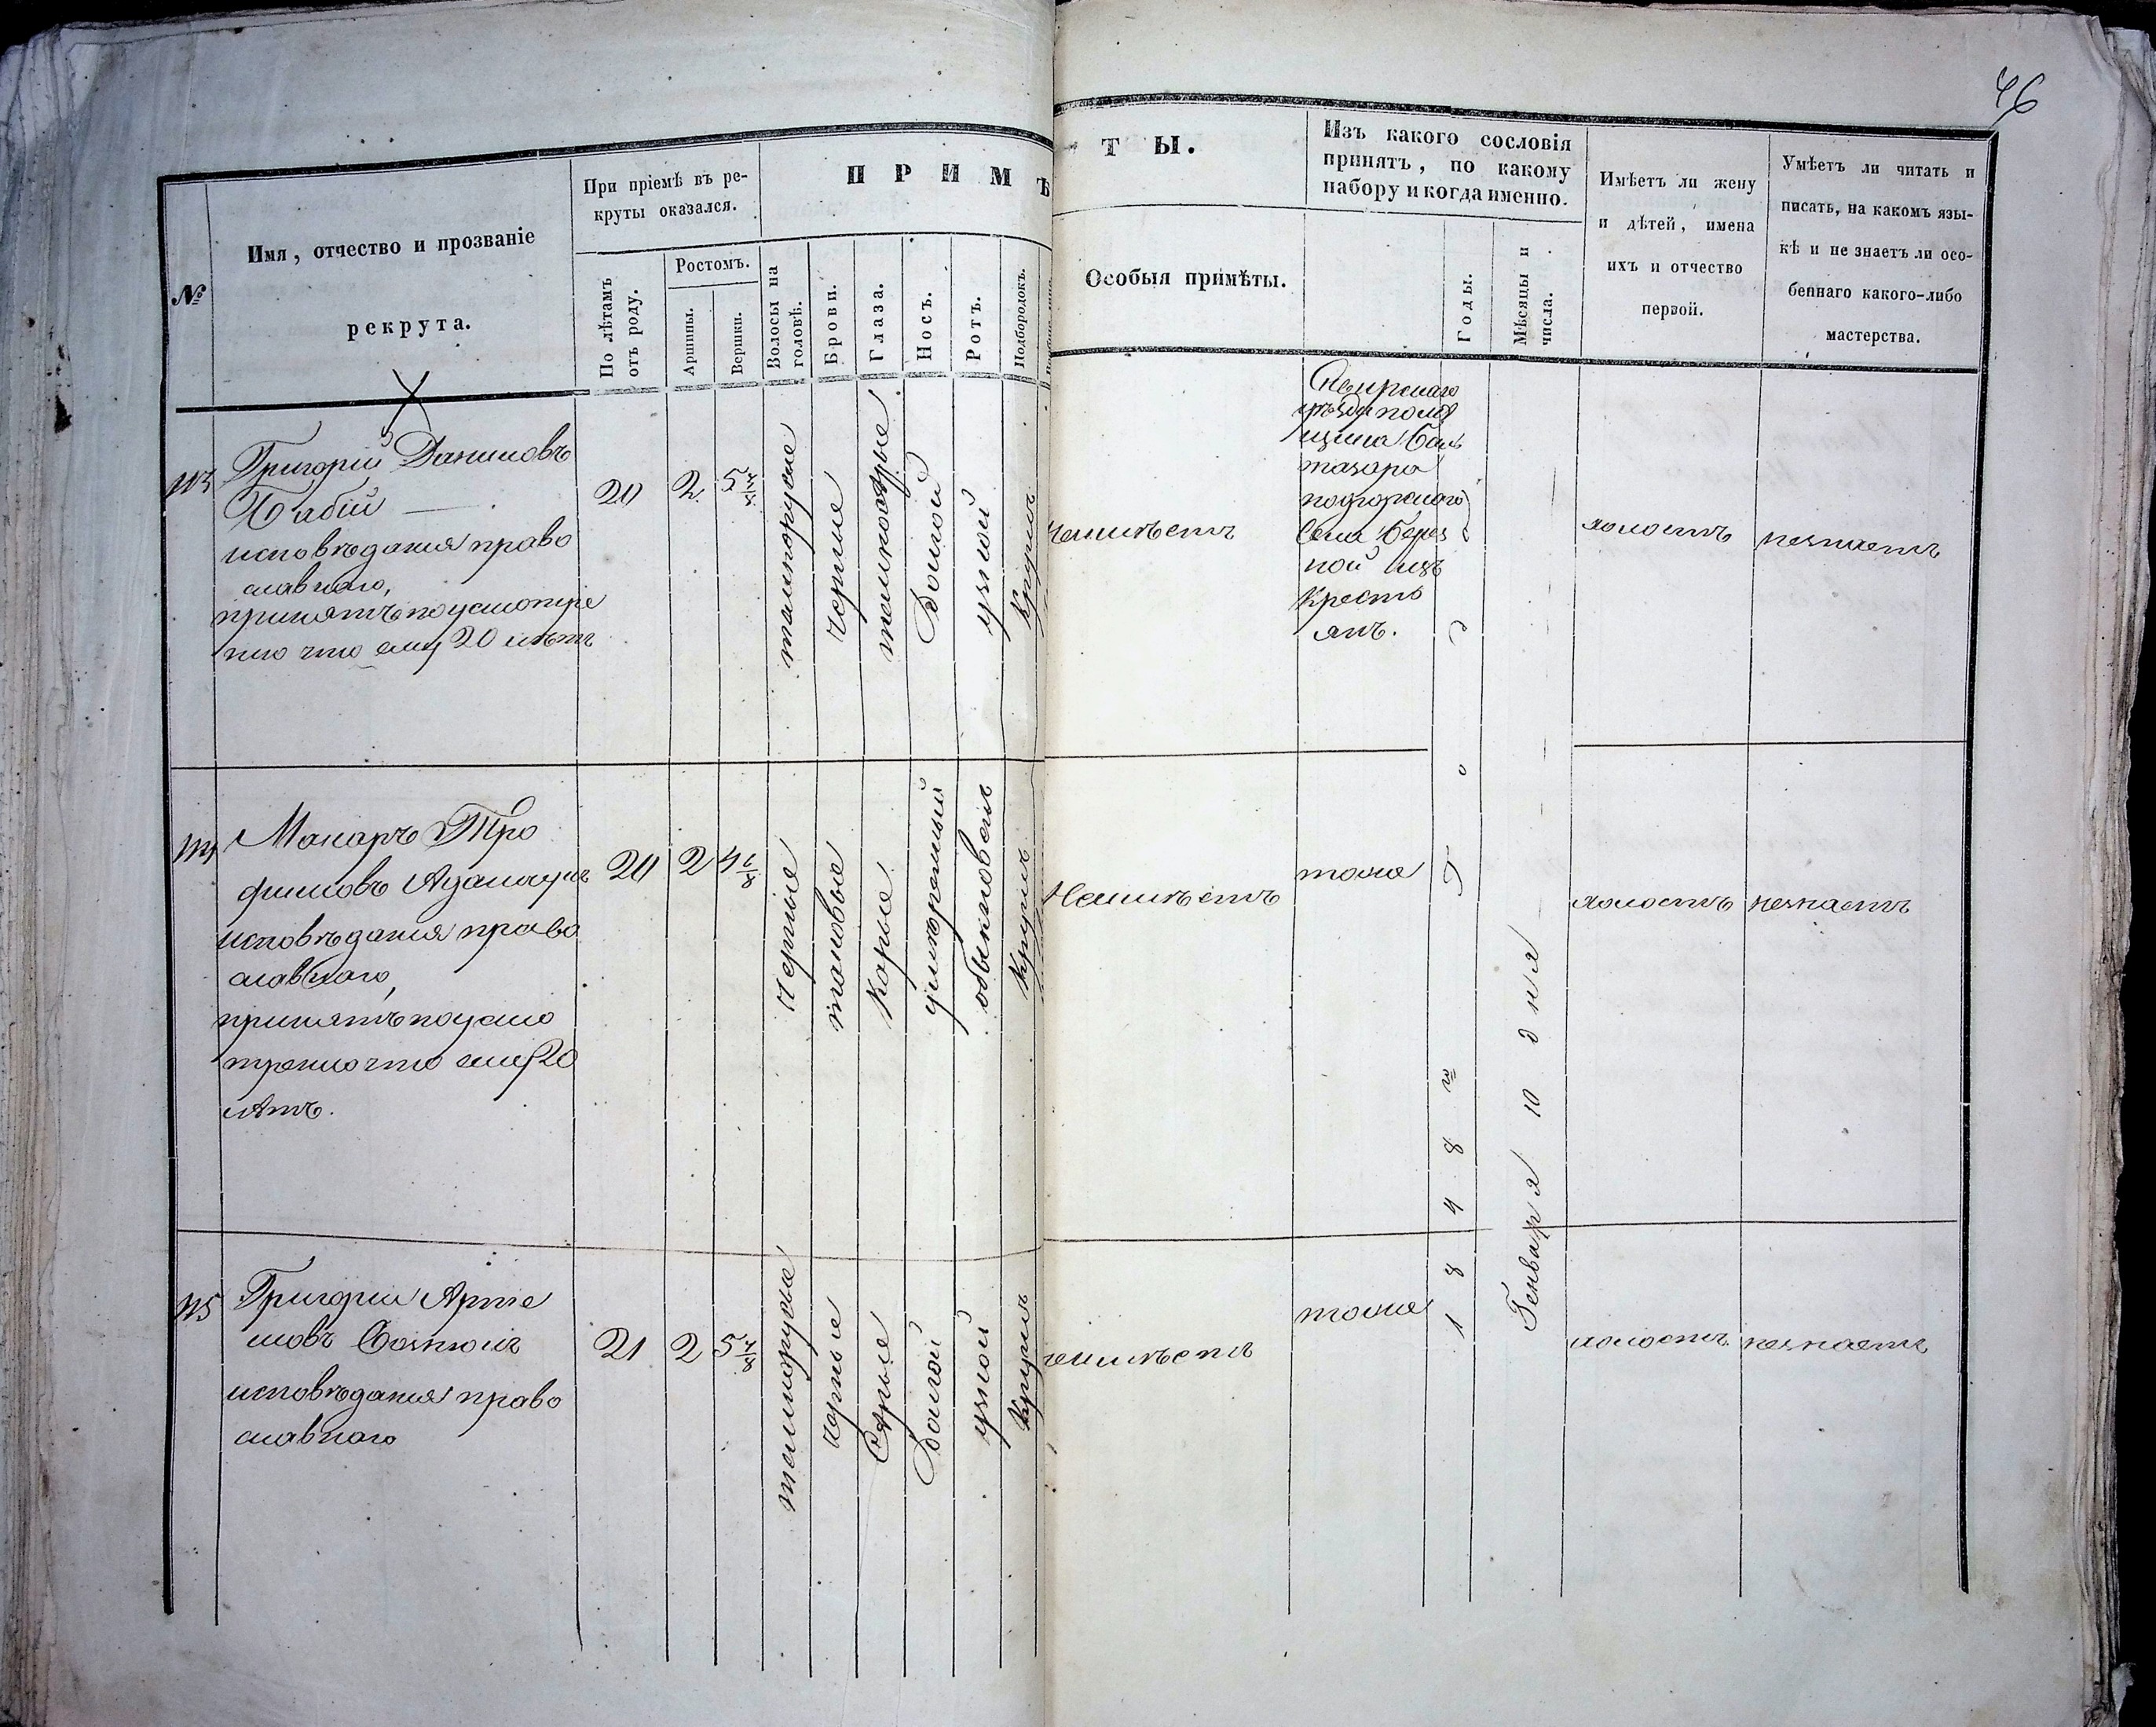 46
П Р И М Ѣ Т Ы.
№
Имя, отчество и прозваніе
рекрута.
При пріемѣ въ ре-
круты оказался.
По лѣтамъ
отъ роду.
Ростомъ.
Аршины.
Вершки.
Волосы на
головѣ.
Брови.
Глаза.
Носъ.
Ротъ.
Подбородокъ.
Особыя примѣты.
Изъ какого сословія
принятъ, по какому
набору и когда именно.
Годы.
Мѣсяцы и
числа.
Имѣетъ ли жену
и дѣтей, имена
ихъ и отчество
первой.
Умѣетъ ли читать и
писать, на какомъ язы-
кѣ и не знаетъ ли осо-
беннаго какого-либо
мастерства.
113
Григорій Даниловъ
Бабій
исповѣданія право
славнаго,
принятъ по усмотре
нію что ему 20 лѣтъ
20
2
5
темнорусые
черные
темносѣрые
Долгой
узкой
Круглъ
неимѣетъ
Сквирскаго
уѣзда помѣ
щика Бал
тазара
подгорскаго
Села Берез
ной изъ
Кресть
янъ.
холостъ
незнаетъ
114
Макаръ Тро
фимовъ
исповѣданія право
славнаго,
принятъ по усмо
тренію что ему 20
лѣтъ.
20
2
4
Черные
таковые
Карые
умѣренный
обыкновенъ
Круглъ
Неимѣетъ
тоже
холостъ
незнаетъ
1848 года
Генваря 10 дня
115
Григорій Артіе
мовъ
исповѣданія право
славнаго
21
2
5
темнорусые
чорные
Сѣрые
Долгой
узкой
Круглъ
неимѣетъ
тоже
холостъ
незнаетъ